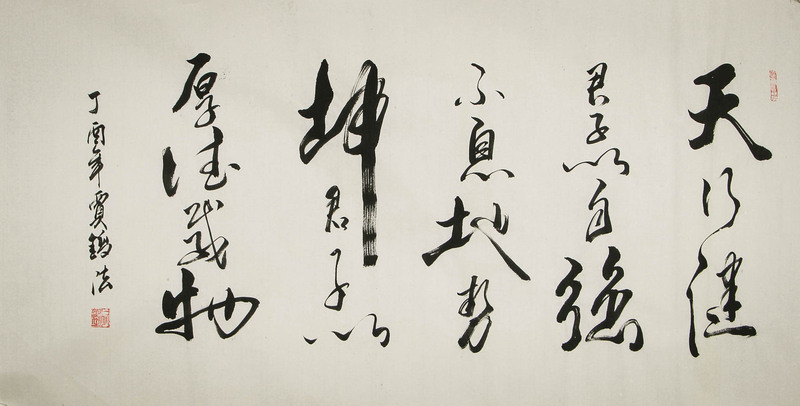 天行健
君子以自強
不息地势
坤君子以
厚德載物
丁酉年賈鐵法